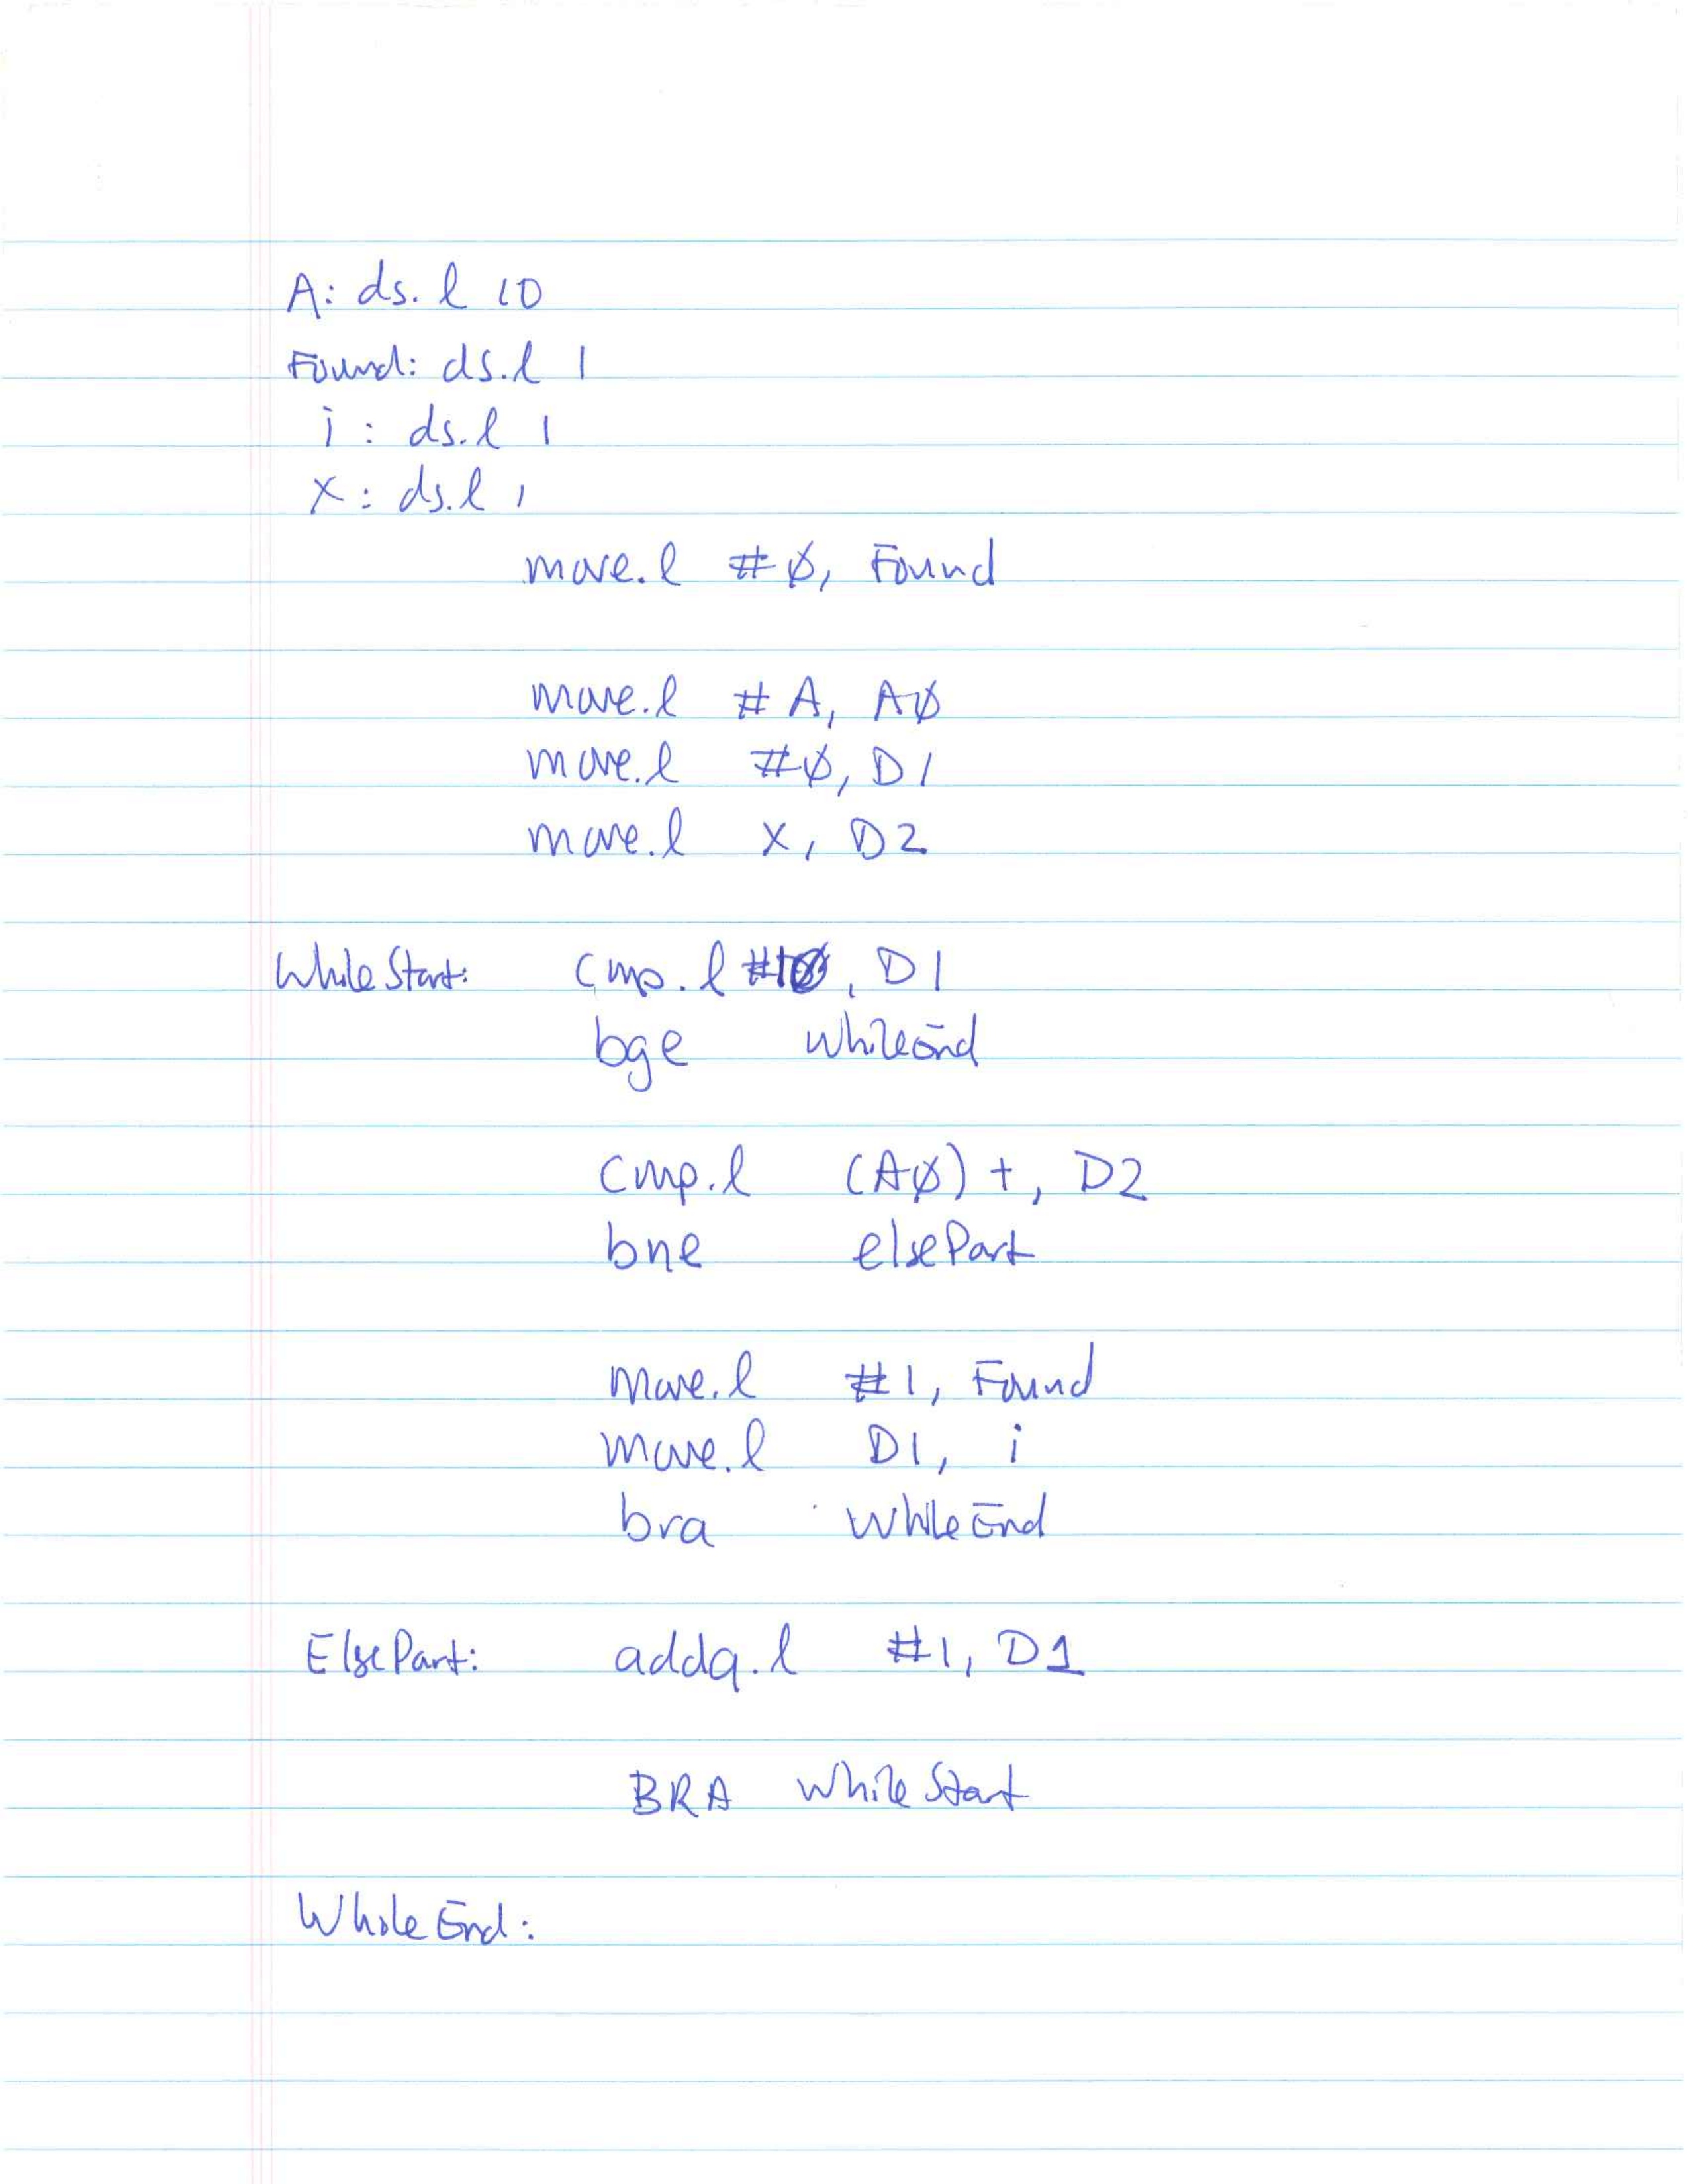 A: ds.l 10
Found: ds.l 1
i: ds.l 1
X: ds.l 1
move.l #Ø, Found
move.l #A, AØ
move.l #Ø, D1
move.l X, D2
While Start: cmp.l #1Ø, D1
bge WhileEnd
cmp.l (AØ)+, D2
bne elsePart
move.l #1, Found
move.l D1, i
bra WhileEnd
ElsePart: addq.l #1, D1
BRA While Start
While End: